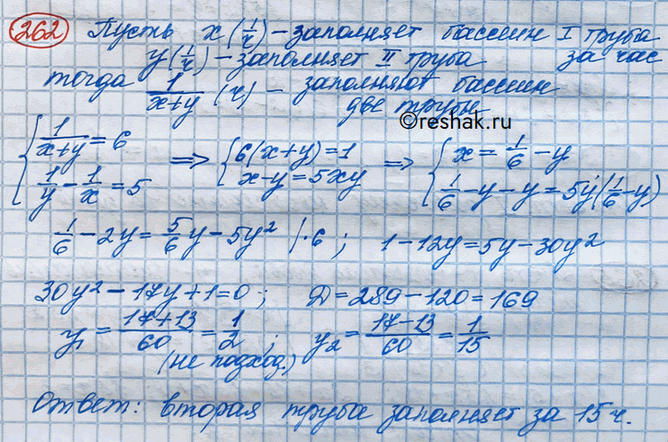 262 Пусть x (1/ч) – заполняет бассейн I труба
y (1/ч) – заполняет II труба за час
тогда 1/(x+y) (ч) – заполняют бассейн
две трубы
©reshak.ru
{ 1/(x+y) = 6 ⇒ { 6(x+y)=1 ⇒ { x = 1/6 – y
1/y – 1/x = 5 x–y=5xy 1/6 – y – y = 5y(1/6 – y)
1/6 – 2y = 5/6 y – 5y² |·6 ; 1–12y=5y–30y²
30y² – 17y + 1 = 0 ; D = 289 – 120 = 169
y₁ = (17+13)/60 = 1/2 ; y₂ = (17–13)/60 = 1/15
(не подход.)
Ответ: вторая труба заполняет за 15 ч.